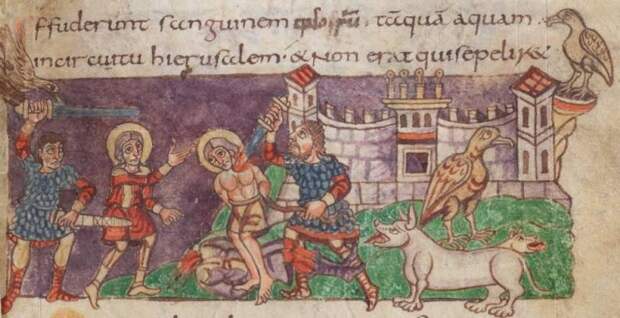 ffuderunt sanguinem tāquā aquam
incircuitu hierusalem · & Non erat quisepelir&